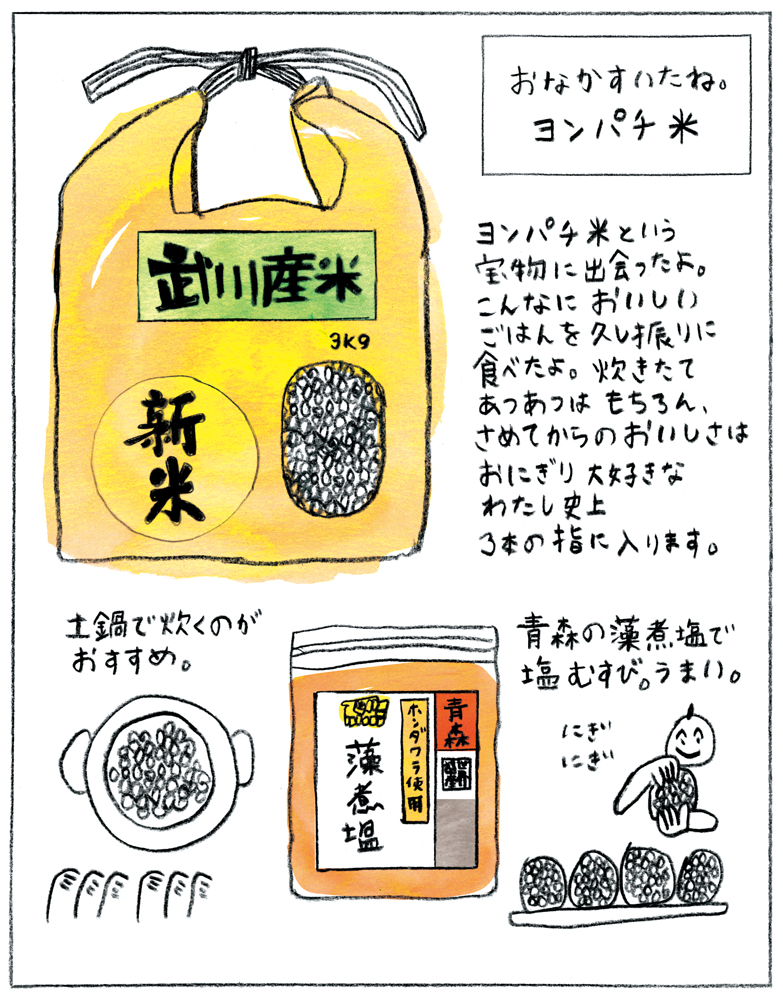 おなかすいたね。
ヨンパチ米
武川産米
3Kg
新米
ヨンパチ米という
宝物に出会ったよ。
こんなにおいしい
ごはんを久し振りに
食べたよ。炊きたて
あつあつはもちろん、
さめてからのおいしさは
おにぎり大好きな
わたし史上
3本の指に入ります。
土鍋で炊くのが
おすすめ。
ホンダワラ使用
青森
藻煮塩
青森の藻煮塩で
塩むすび。うまい。
にぎ
にぎ